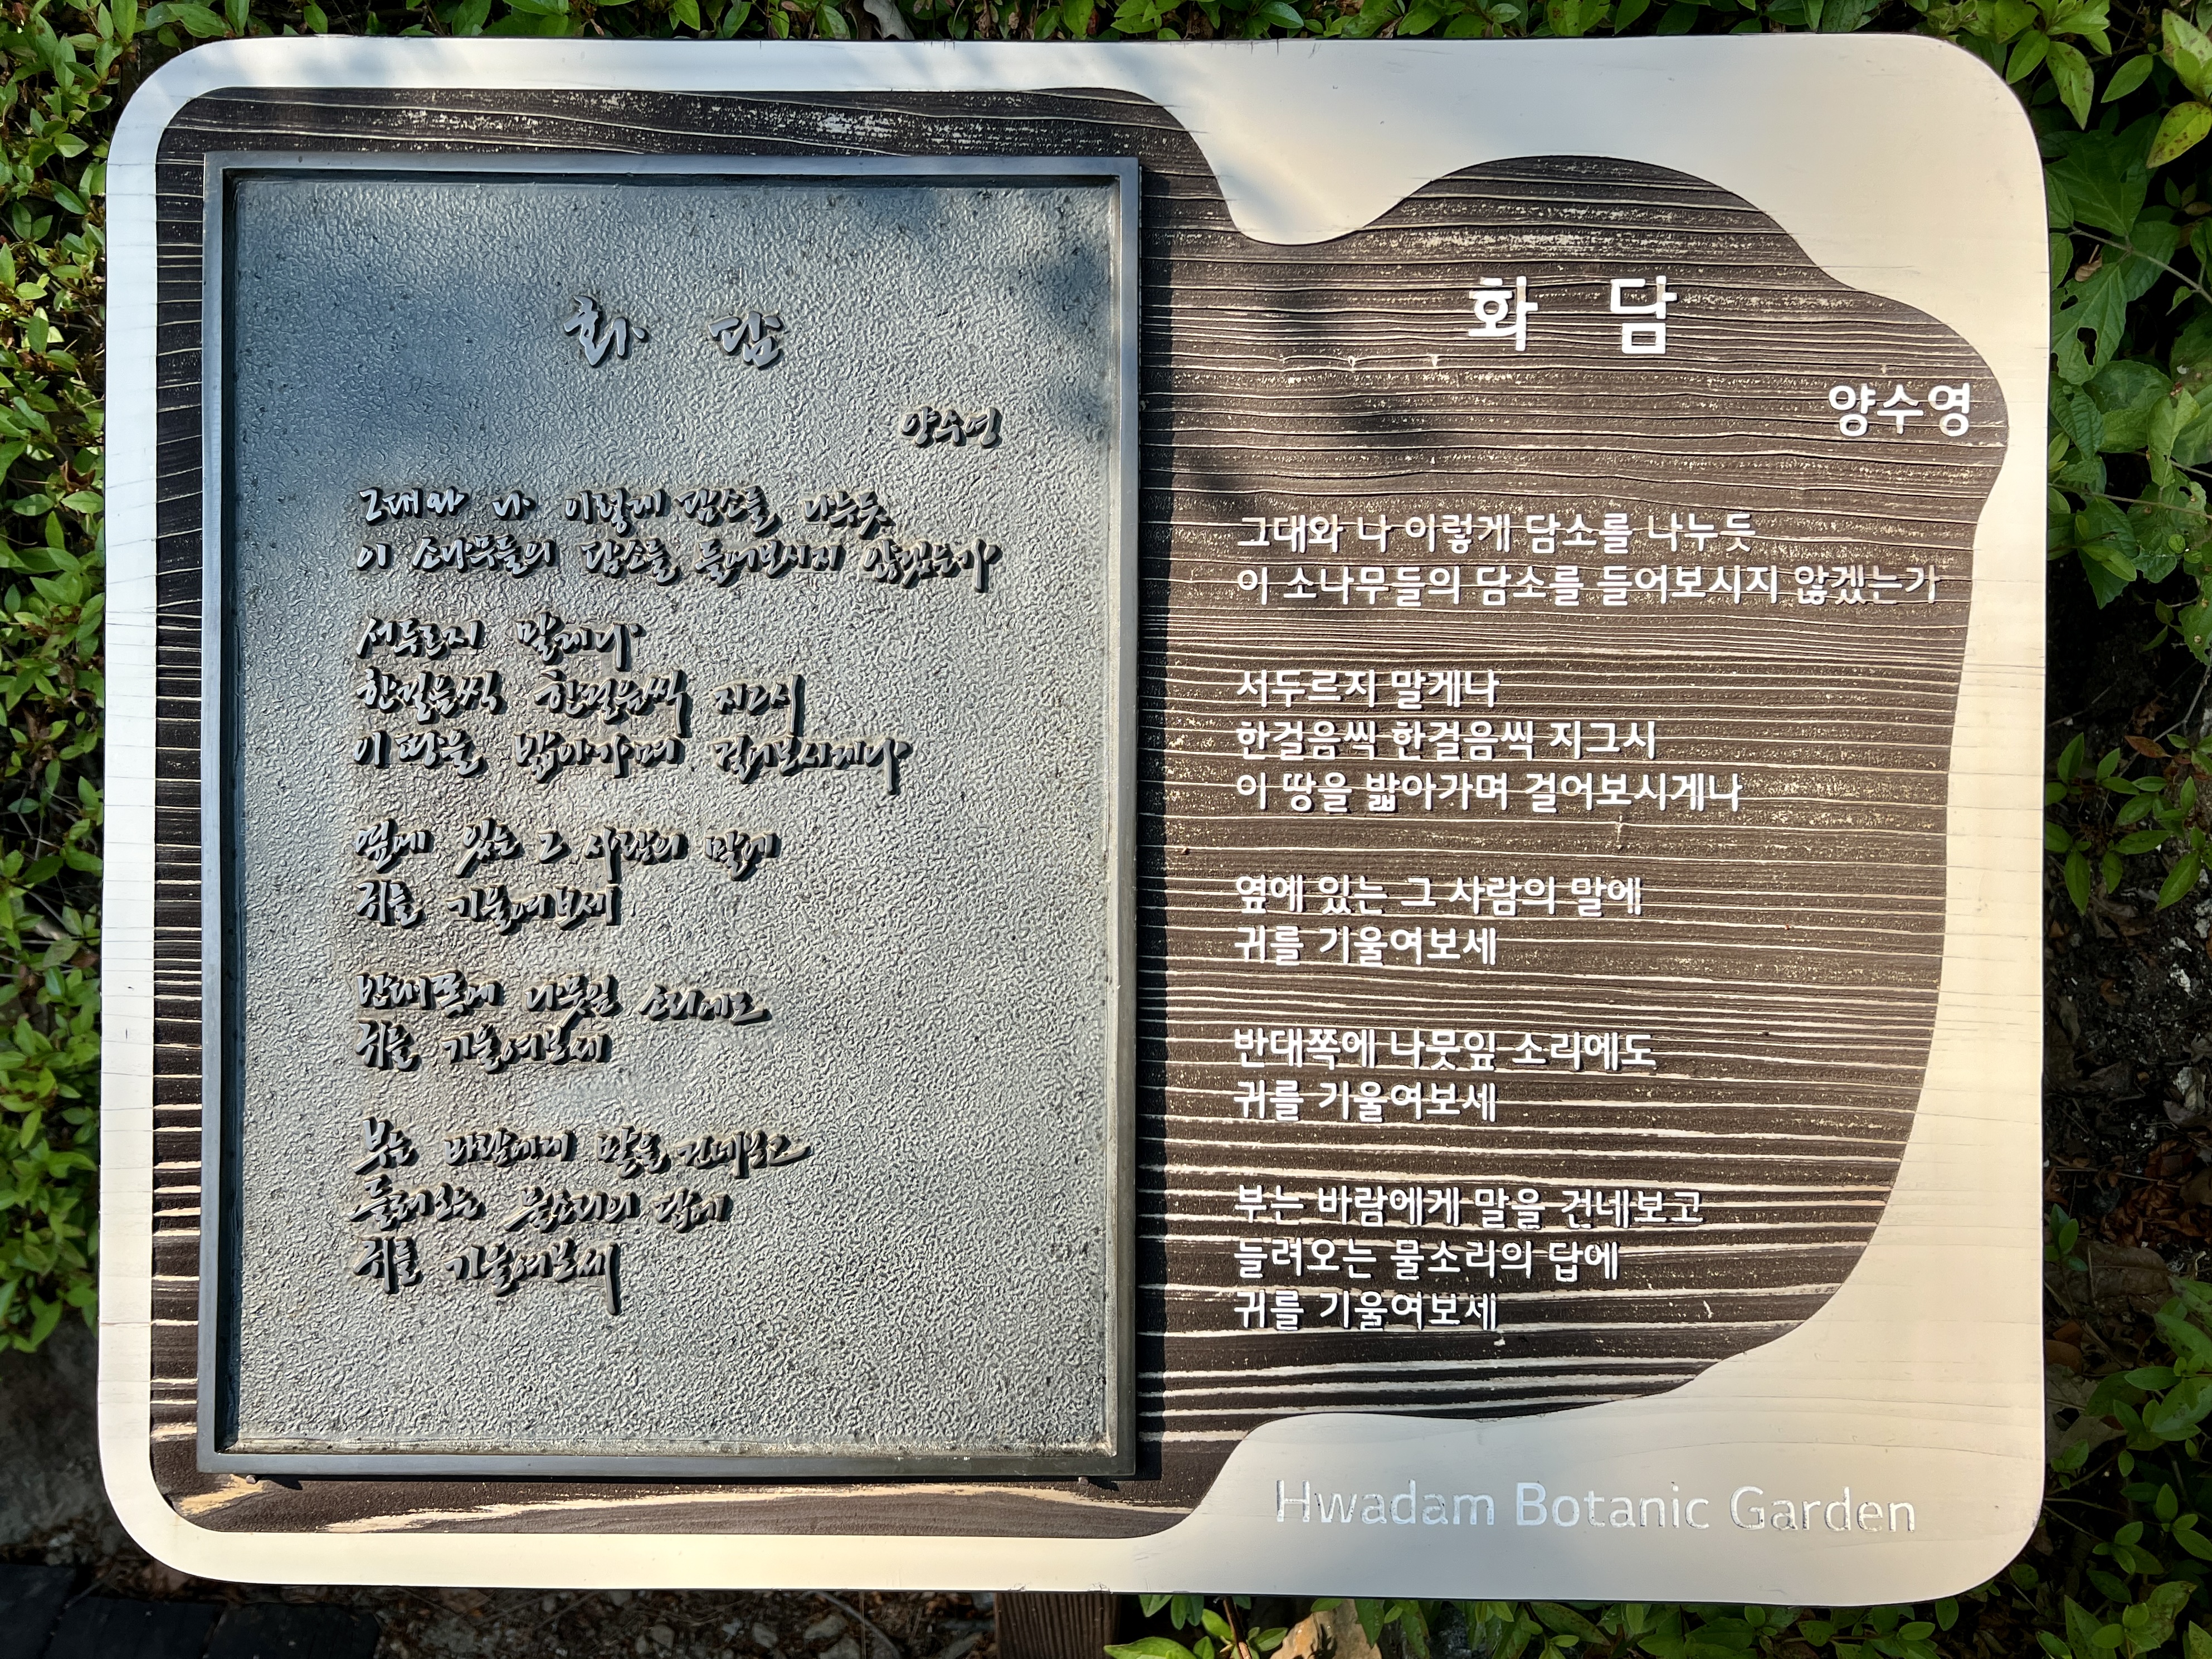 화 담
양수영
그대와 나 이렇게 담소를 나누듯
이 소나무들의 담소를 들어보시지 않겠는가
서두르지 말게나
한걸음씩 한걸음씩 지그시
이 땅을 밟아가며 걸어보시게나
옆에 있는 그 사람의 말에
귀를 기울여보세
반대쪽에 나뭇잎 소리에도
귀를 기울여보세
부는 바람에게 말을 건네보고
들려오는 물소리의 답에
귀를 기울여보세
화 담
양수영
그대와 나 이렇게 담소를 나누듯
이 소나무들의 담소를 들어보시지 않겠는가
서두르지 말게나
한걸음씩 한걸음씩 지그시
이 땅을 밟아가며 걸어보시게나
옆에 있는 그 사람의 말에
귀를 기울여보세
반대쪽에 나뭇잎 소리에도
귀를 기울여보세
부는 바람에게 말을 건네보고
들려오는 물소리의 답에
귀를 기울여보세
Hwadam Botanic Garden